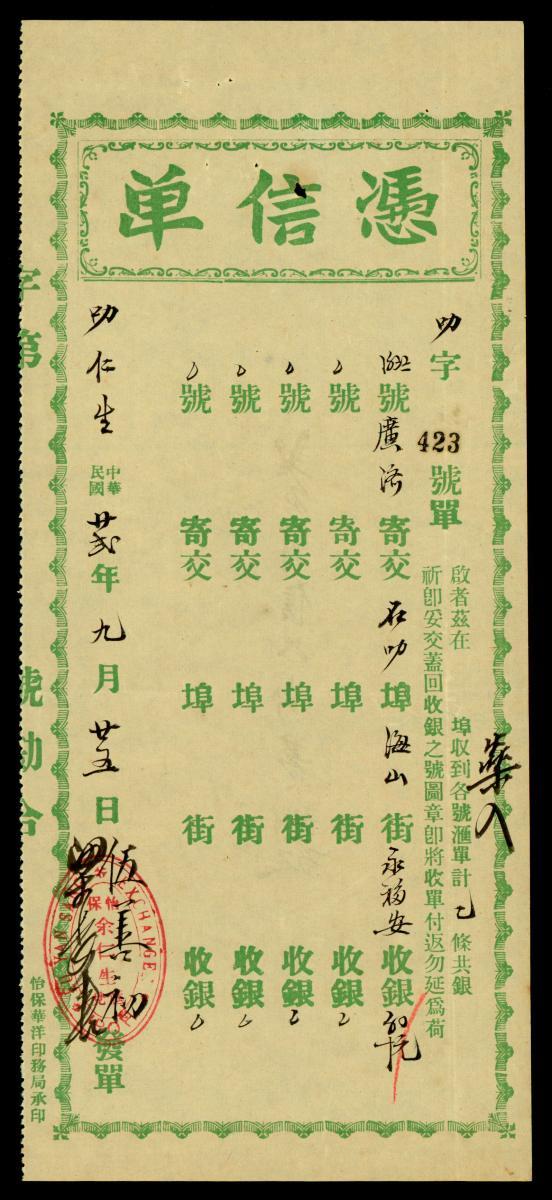 憑信单
叻字423號單
啟者茲在 埠收到各號滙單計 條共銀
祈即妥交蓋回收銀之號圖章即將收單付返勿延爲荷
號廣濟寄交石叻埠海山街永福安收銀
號 寄交 埠 街 收銀
號 寄交 埠 街 收銀
號 寄交 埠 街 收銀
號 寄交 埠 街 收銀
叻仁生 中華民國廿弍年九月廿五日 發單
EXCHANGE
怡保
余仁生
怡保華洋印務局承印
字第 號勘合